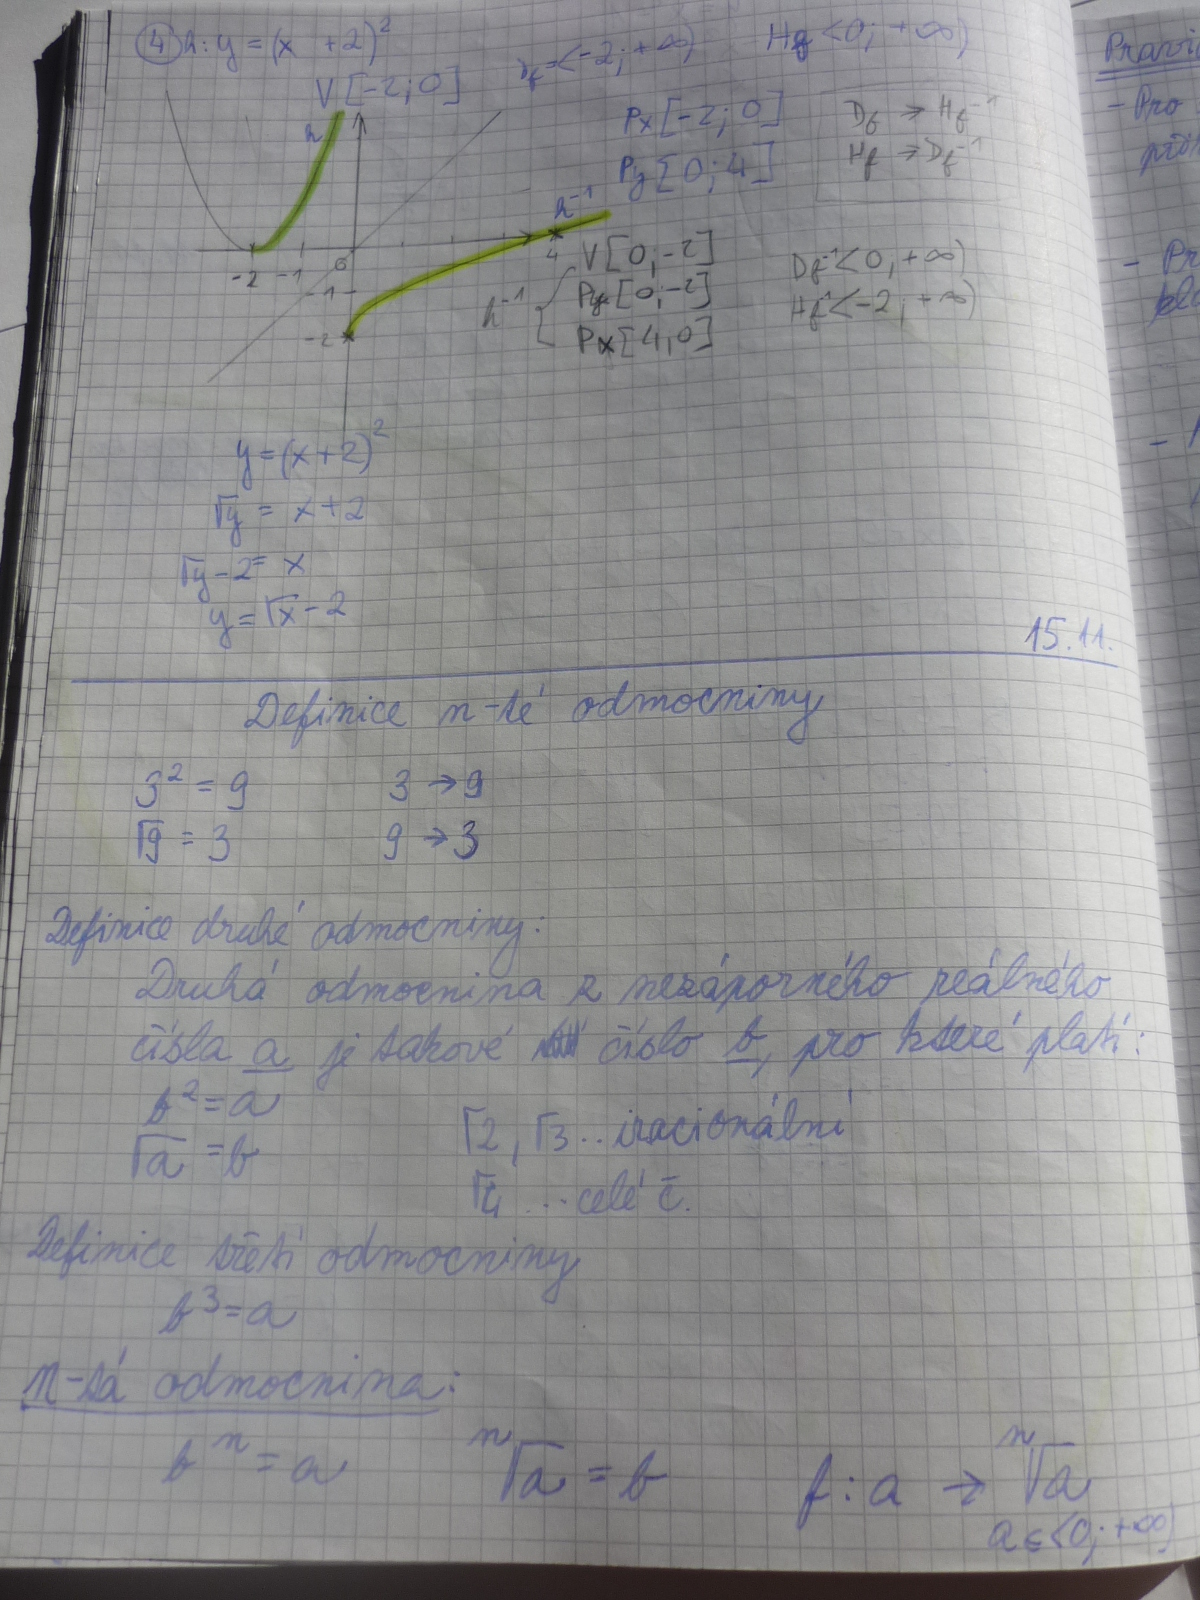 ④ h: y = (x +2)²
V[-2;0]
Df = <-2; +∞)
Hf <0; +∞)
Px [-2; 0]
Py [0; 4]
Df → Hf⁻¹
Hf → Df⁻¹
h
h⁻¹
-2 -1 0 4
-1
-2
h⁻¹
V[0;-2]
Py [0;-2]
Px [4;0]
Df⁻¹ <0; +∞)
Hf⁻¹ <-2; +∞)
y = (x+2)²
√y = x+2
√y - 2 = x
y = √x - 2
15.11.
Definice n-té odmocniny
3² = 9 3 → 9
√9 = 3 9 → 3
Definice druhé odmocniny:
Druhá odmocnina z nezáporného reálného
čísla a je takové číslo b, pro které platí:
b² = a
√a = b
√2, √3 .. iracionální
√4 ... celé č.
Definice třetí odmocniny
b³ = a
n-tá odmocnina:
bⁿ = a ⁿ√a = b f: a → ⁿ√a
a ∈ <0; +∞)
- Pro